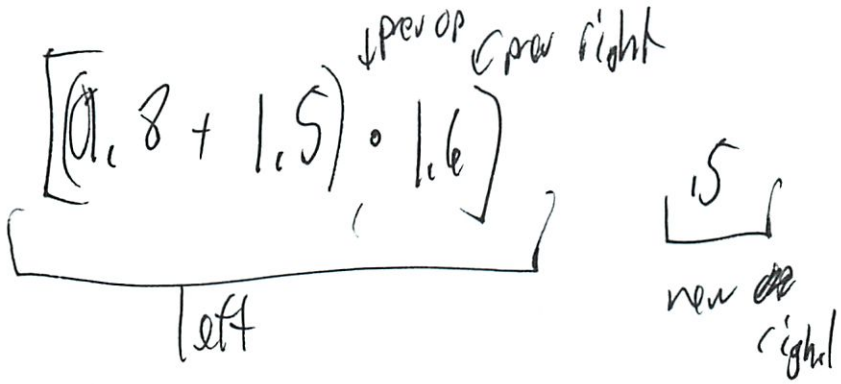 ↓prev op
↙prev right
[(0.8 + 1.5) · 1.6]
.5
left
new
right